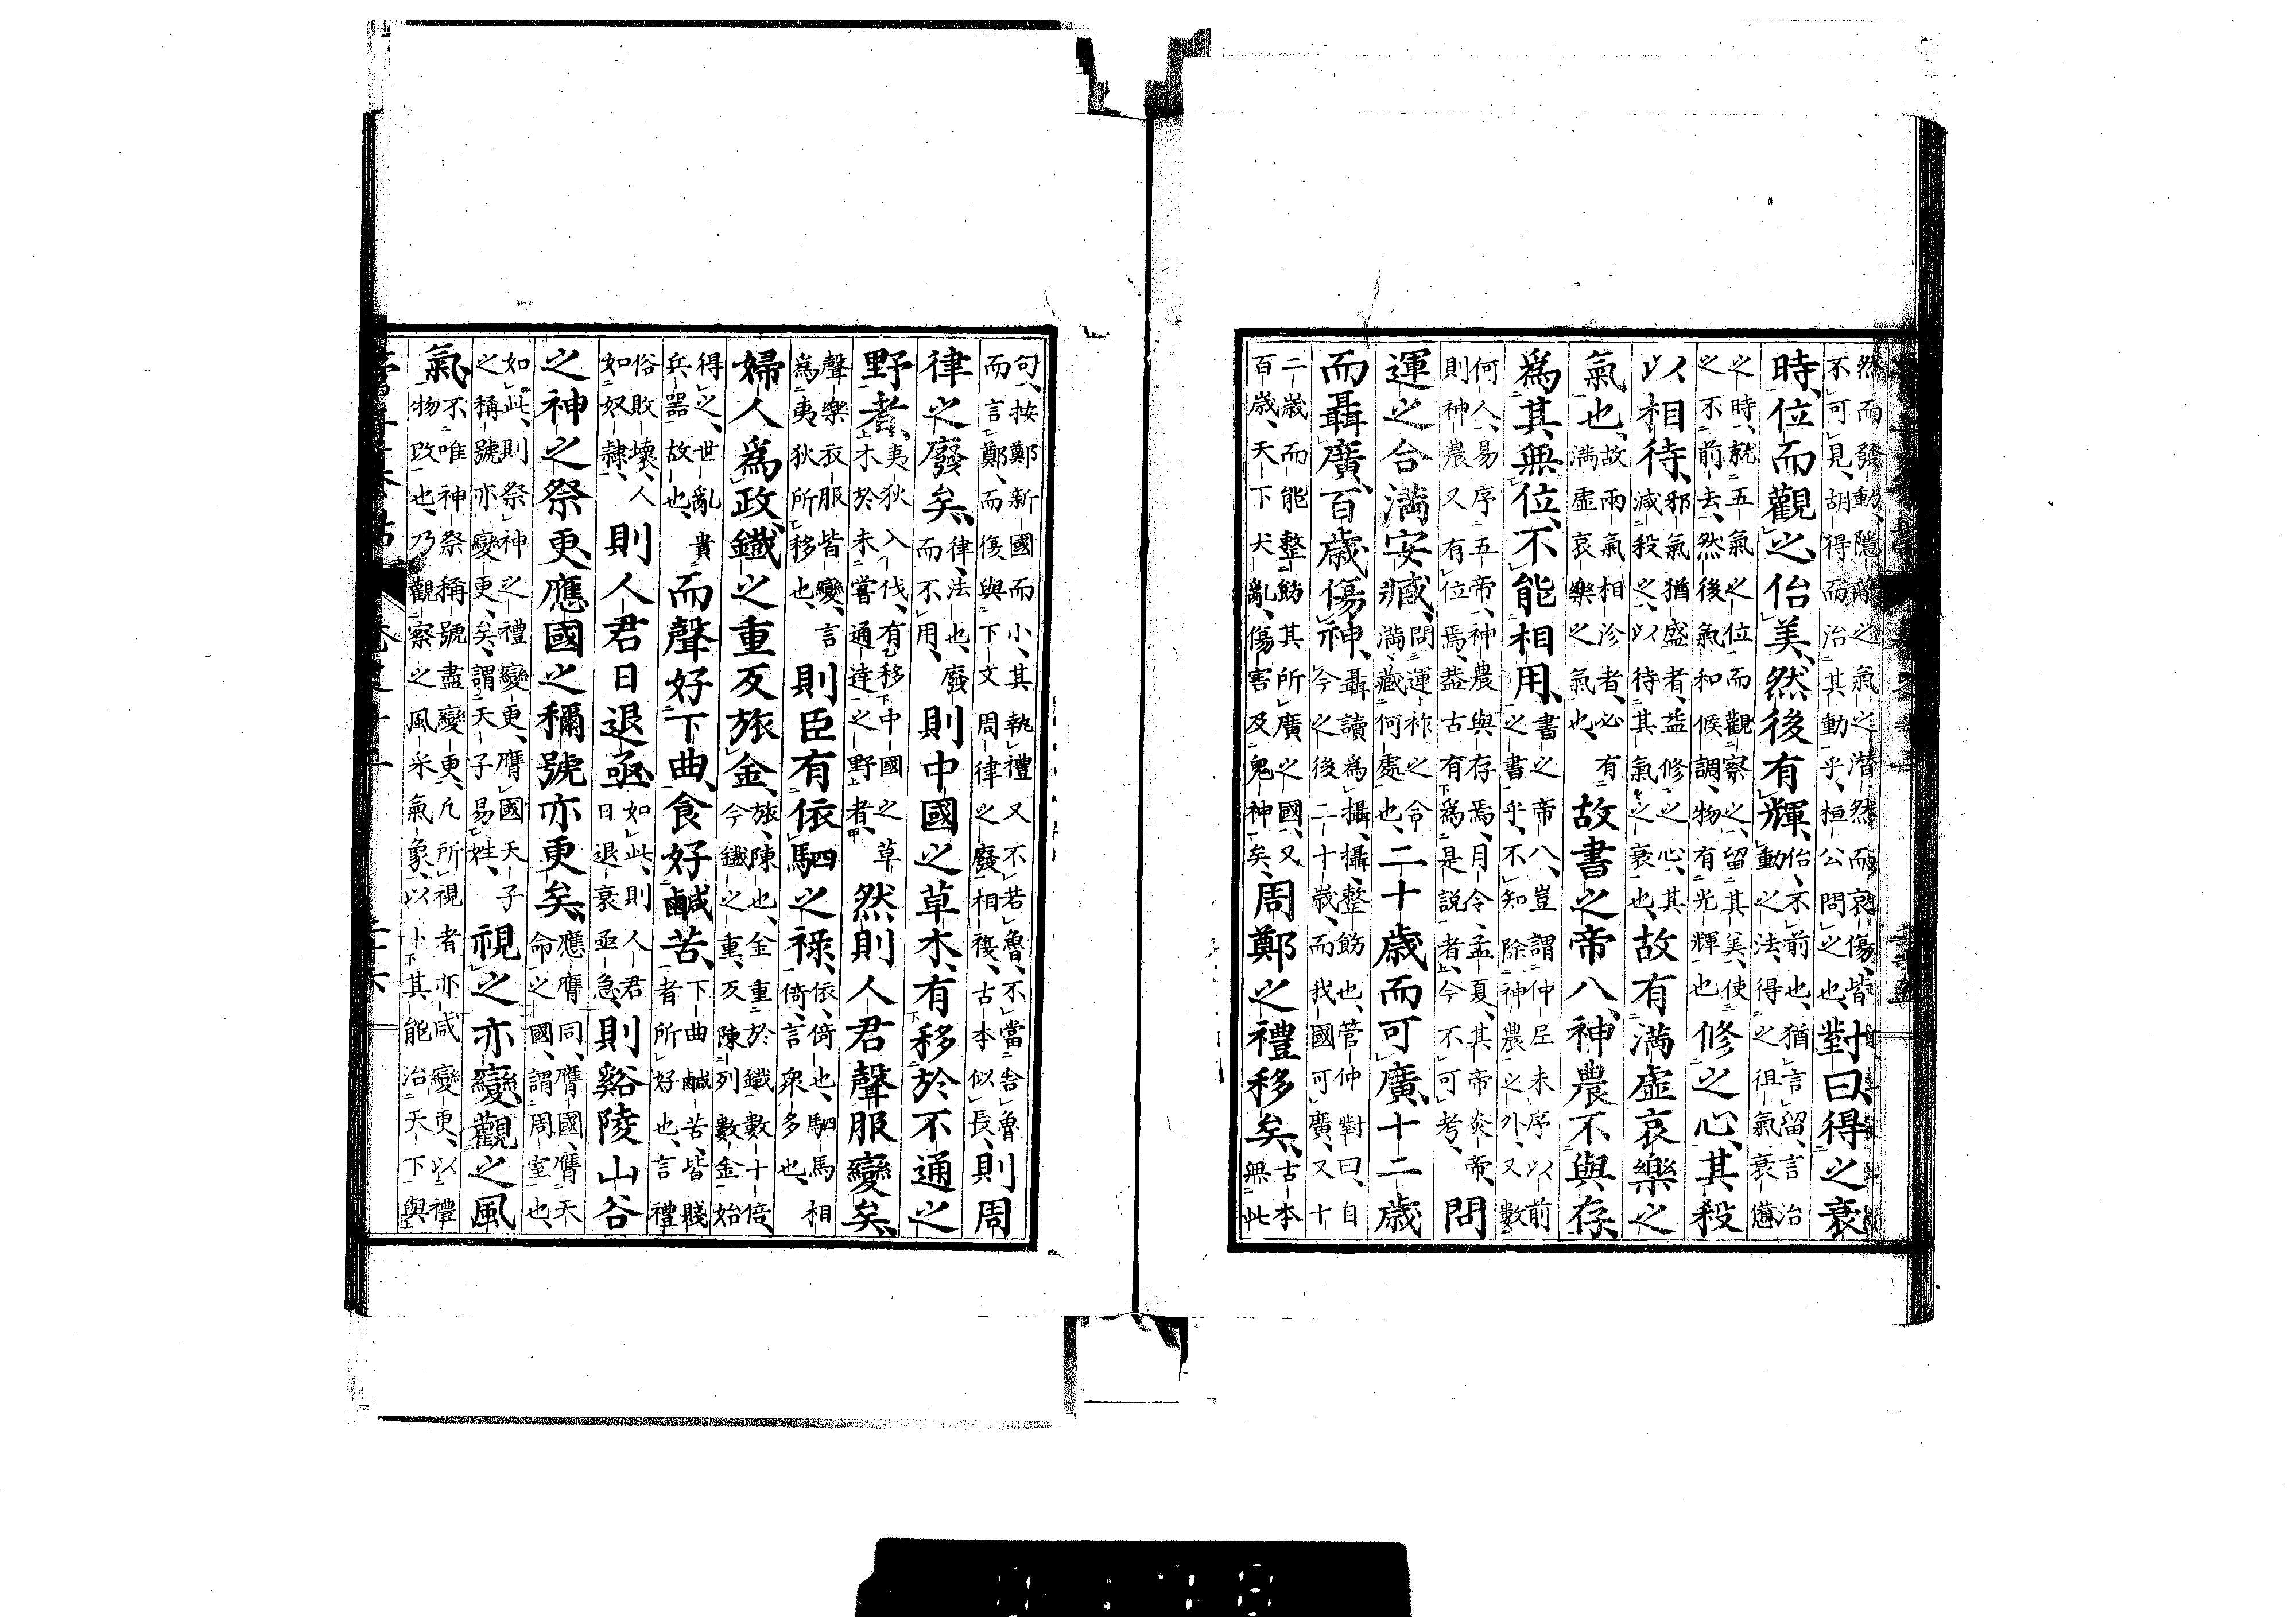 然而發動、隱蔽之氣之潜然而哀傷、皆不可見、胡得而治其動乎、桓公問之也、對曰、得之衰
時、位而觀之佁美、然後有輝、佁、不前也、猶言留、言治動之法、得之徂氣衰憊
之時、就五氣之位而觀察之、留其美、使之不前去、然後氣和候調、物有光輝也修之心、其殺
以相待、邪氣猶盛者、益修之心、其減殺之、以待其氣之衰也、故有滿虛哀樂之
氣也、故兩氣相沴者、必有滿虛哀樂之氣也、故書之帝八、神農不與存、
爲其無位、不能相用、書之帝八、豈謂仲尼未序以前之書乎、不知除神農之外、又數
何人、易序五帝、神農與存焉、月令、孟夏、其帝炎帝、則神農又有位焉、蓋古有爲是説者、今不可考、問
運之合滿安臧、問運祚之合滿、藏何處也、二十歳而可廣、十二歳
而聶廣、百歳傷神、聶讀爲攝、攝、整飭也、管仲對曰、自今之後二十歳、而我國可廣、又十
二歳而能整飭其所廣之國、又百歳、天下大亂、傷害及鬼神矣、周鄭之禮移矣、古本無此
句、按鄭新國而小、其執禮又不若魯、不當舎魯而言鄭、而復與下文周律之廢相複、古本似長、則周
律之廢矣、律、法也、廢而不用、則中國之草木、有移於不通之
野者、夷狄入伐、有移中國之草木於未嘗通達之野者、然則人君聲服變矣、
聲樂衣服皆變、言爲夷狄所移也、則臣有依駟之祿、依、倚也、駟馬相倚、言衆多也、
婦人爲政、鐵之重反旅金、旅、陳也、金重於鐵數十倍、今鐵之重、反陳列數金、始
得之、世亂貴兵器故也、而聲好下曲、食好鹹苦、下曲鹹苦、皆賤者所好也、言禮
俗敗壞、人如奴隷、則人君日退亟、如此、則人君日退衰亟急、則谿陵山谷
之神之祭更、應國之稱號亦更矣、應膺同、膺國、膺天命之國、謂周室也、
如此、則祭神之禮變更、膺國天子之稱號亦變更矣、謂天子易姓、視之亦變、觀之風
氣、不唯神祭稱號盡變更、凡所視者亦咸變更、以禮物改也、乃觀察之風采氣象、以卜其能治天下與